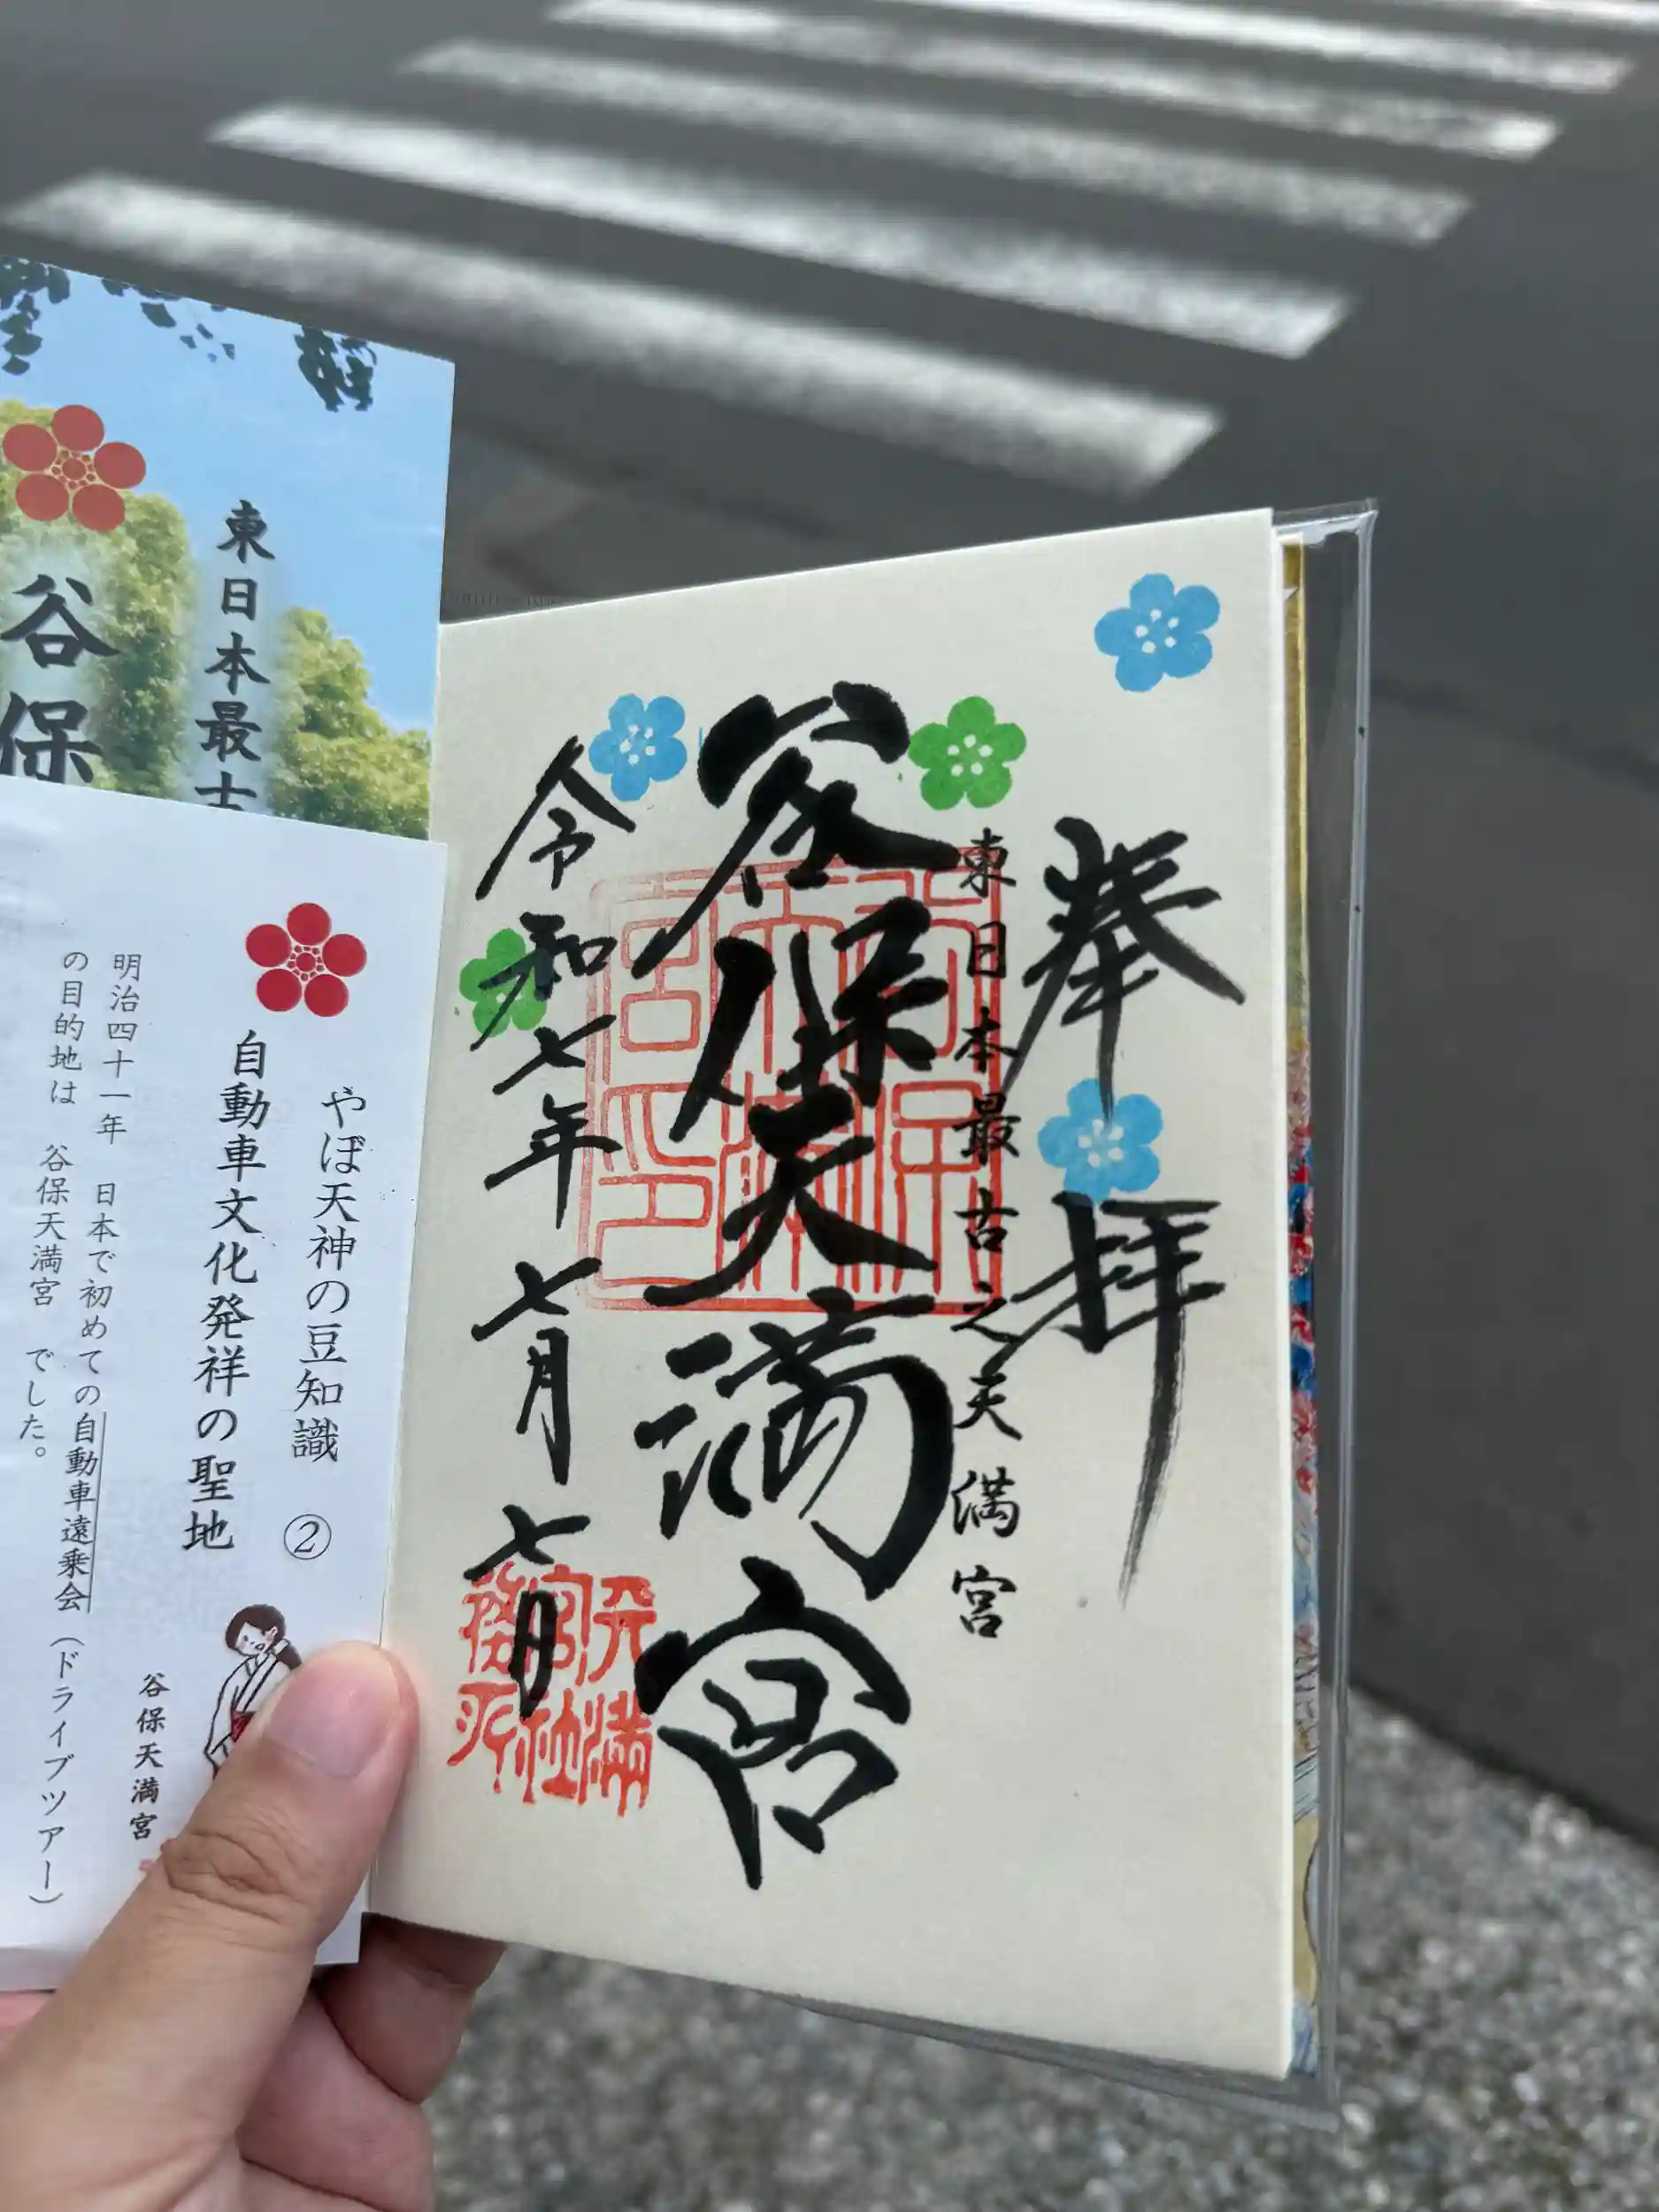 奉拝
東日本最古之天満宮
谷保天満宮
令和七年七月七日
東日本最
谷保
やぼ天神の豆知識 ②
自動車文化発祥の聖地
明治四十一年 日本で初めての自動車遠乗会(ドライブツアー)
の目的地は 谷保天満宮 でした。
谷保天満宮